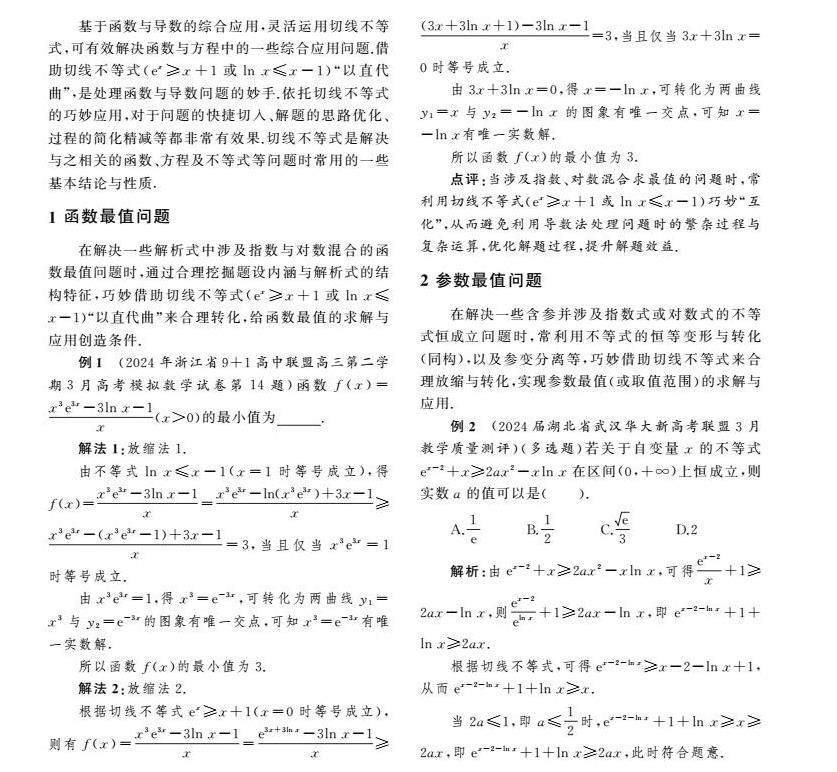 基于函数与导数的综合应用,灵活运用切线不等
式,可有效解决函数与方程中的一些综合应用问题.借
助切线不等式(eˣ⩾x+1 或 ln x⩽x-1)“以直代
曲”,是处理函数与导数问题的妙手.依托切线不等式
的巧妙应用,对于问题的快捷切入、解题的思路优化、
过程的简化精减等都非常有效果.切线不等式是解决
与之相关的函数、方程及不等式等问题时常用的一些
基本结论与性质.
1 函数最值问题
在解决一些解析式中涉及指数与对数混合的函
数最值问题时,通过合理挖掘题设内涵与解析式的结
构特征,巧妙借助切线不等式(eˣ⩾x+1 或 ln x⩽
x-1)“以直代曲”来合理转化,给函数最值的求解与
应用创造条件.
例 1 (2024 年浙江省 9+1 高中联盟高三第二学
期 3 月高考模拟数学试卷第 14 题)函数 f(x)=
(x³e³ˣ-3ln x-1)/x (x>0)的最小值为______.
解法 1:放缩法 1.
由不等式 ln x⩽x-1(x=1 时等号成立),得
f(x)=(x³e³ˣ-3ln x-1)/x=(x³e³ˣ-ln(x³e³ˣ)+3x-1)/x⩾
(x³e³ˣ-(x³e³ˣ-1)+3x-1)/x=3,当且仅当 x³e³ˣ=1
时等号成立.
由 x³e³ˣ=1,得 x³=e⁻³ˣ,可转化为两曲线 y₁=
x³ 与 y₂=e⁻³ˣ的图象有唯一交点,可知 x³=e⁻³ˣ有唯
一实数解.
所以函数 f(x)的最小值为 3.
解法 2:放缩法 2.
根据切线不等式 eˣ⩾x+1(x=0 时等号成立),
则有 f(x)=(x³e³ˣ-3ln x-1)/x=(e^(3x+3ln x)-3ln x-1)/x⩾
((3x+3ln x+1)-3ln x-1)/x=3,当且仅当 3x+3ln x=
0 时等号成立.
由 3x+3ln x=0,得 x=-ln x,可转化为两曲线
y₁=x 与 y₂=-ln x 的图象有唯一交点,可知 x=
-ln x 有唯一实数解.
所以函数 f(x)的最小值为 3.
点评:当涉及指数、对数混合求最值的问题时,常
利用切线不等式(eˣ⩾x+1 或 ln x⩽x-1)巧妙“互
化”,从而避免利用导数法处理问题时的繁杂过程与
复杂运算,优化解题过程,提升解题效益.
2 参数最值问题
在解决一些含参并涉及指数式或对数式的不等
式恒成立问题时,常利用不等式的恒等变形与转化
(同构),以及参变分离等,巧妙借助切线不等式来合
理放缩与转化,实现参数最值(或取值范围)的求解与
应用.
例 2 (2024 届湖北省武汉华大新高考联盟 3 月
教学质量测评)(多选题)若关于自变量 x 的不等式
eˣ⁻²+x⩾2ax²-xln x 在区间(0,+∞)上恒成立,则
实数 a 的值可以是( ).
A.1/e B.1/2 C.√e/3 D.2
解析:由 eˣ⁻²+x⩾2ax²-xln x,可得 eˣ⁻²/x+1⩾
2ax-ln x,则 eˣ⁻²/e^(ln x)+1⩾2ax-ln x,即 e^(x-2-ln x)+1+
ln x⩾2ax.
根据切线不等式,可得 e^(x-2-ln x)⩾x-2-ln x+1,
从而 e^(x-2-ln x)+1+ln x⩾x.
当 2a⩽1,即 a⩽1/2 时,e^(x-2-ln x)+1+ln x⩾x⩾
2ax,即 e^(x-2-ln x)+1+ln x⩾2ax,此时符合题意.